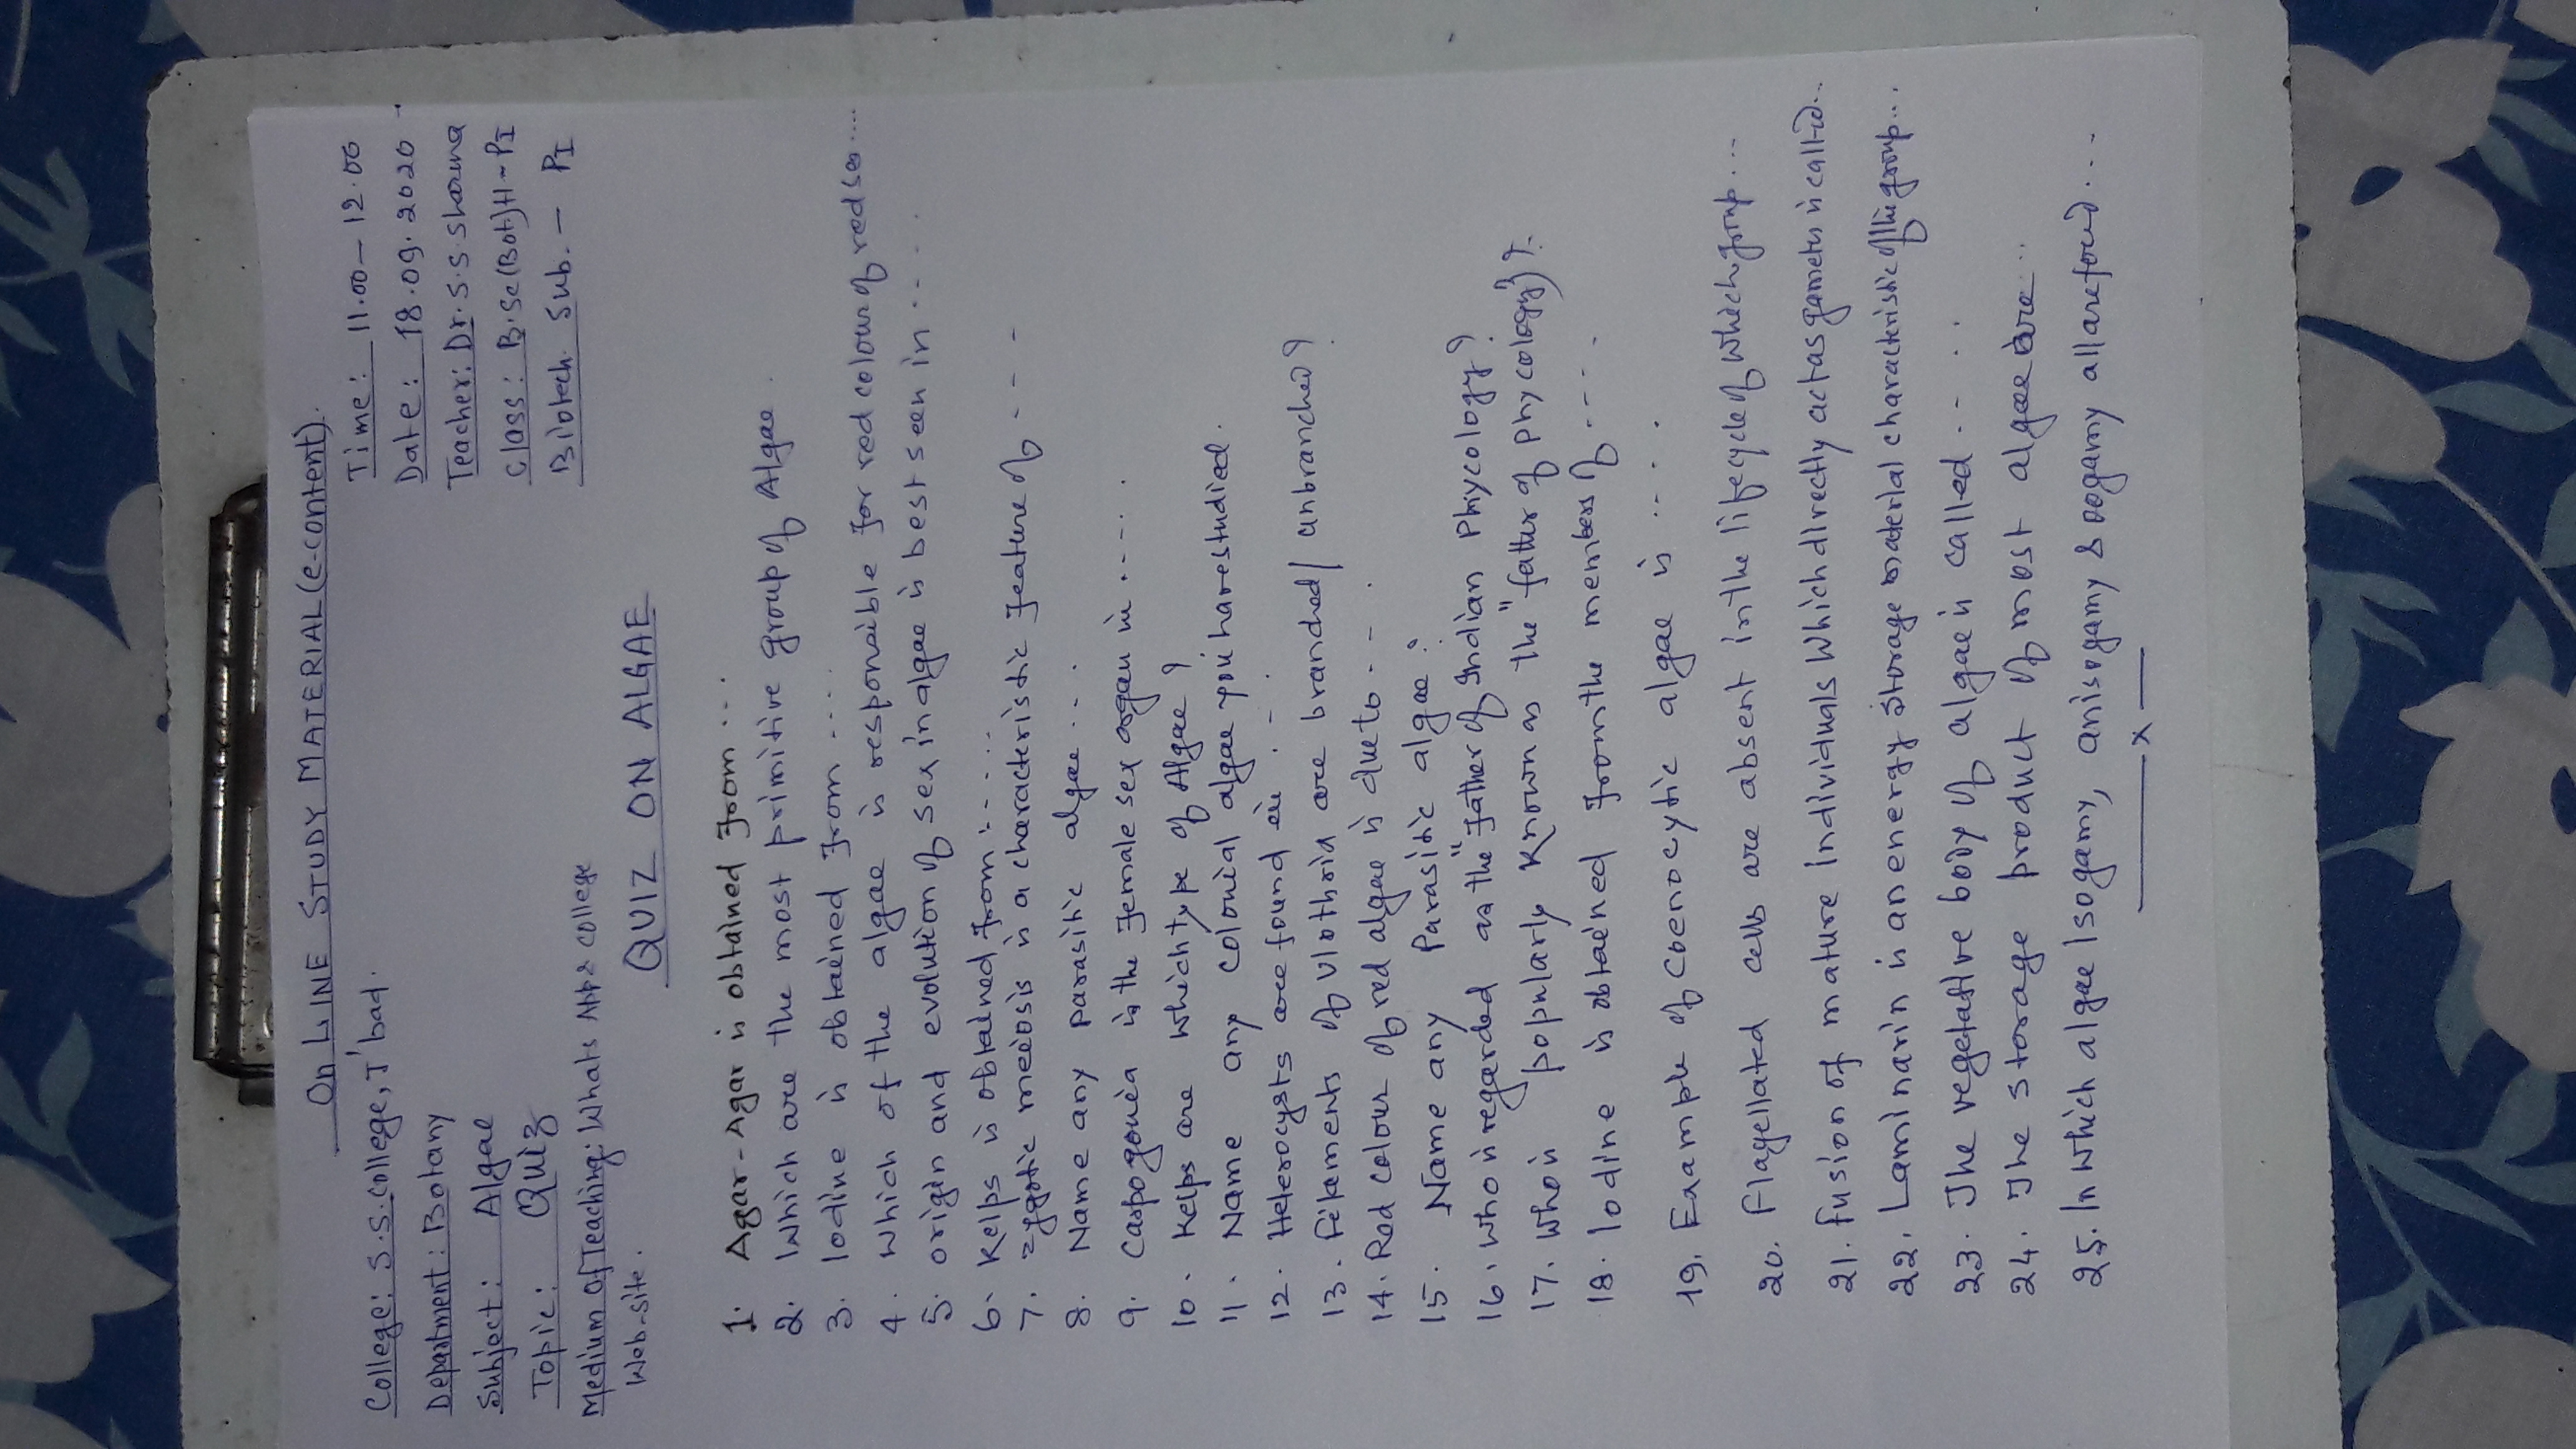 On LINE STUDY MATERIAL (e-content).
College: S.S. College, J'bad.
Time: 11.00 - 12.00
Department: Botany
Date: 18.09.2020
Subject: Algae
Teacher: Dr. S.S Sharma
Topic: Quiz
Class: B.Sc (Bot) H - PI
Medium of Teaching: Whats App & college
Web-site.
Biotech. Sub. - PI
QUIZ ON ALGAE
1. Agar-Agar is obtained from ....
2. Which are the most primitive group of Algae.
3. Iodine is obtained from ....
4. Which of the algae is responsible for red colour of red sea....
5. origin and evolution of sex in algae is best seen in ....
6. Kelps is obtained from ......
7. zygotic meiosis is a characteristic feature of ----
8. Name any parasitic algae ....
9. Carpogonia is the female sex organ in ....
10. Kelps are which type of Algae?
11. Name any colonial algae you have studied.
12. Heterocysts are found in ...
13. Filaments of Ulothrix are branched/unbranched?
14. Red colour of red algae is due to ---.
15. Name any Parasitic algae?
16. Who is regarded as the "father of Indian Phycology?
17. Who is popularly known as the "father of phycology"?
18. Iodine is obtained from the members of ----.
19. Example of coenocytic algae is ....
20. Flagellated cells are absent in the life cycle of which group...
21. Fusion of mature individuals which directly act as gametes is called...
22. Laminarin is an energy storage material characteristic of the group...
23. The vegetative body of algae is called ....
24. The storage product of most algae are...
25. In which algae Isogamy, anisogamy & oogamy all are found...
x